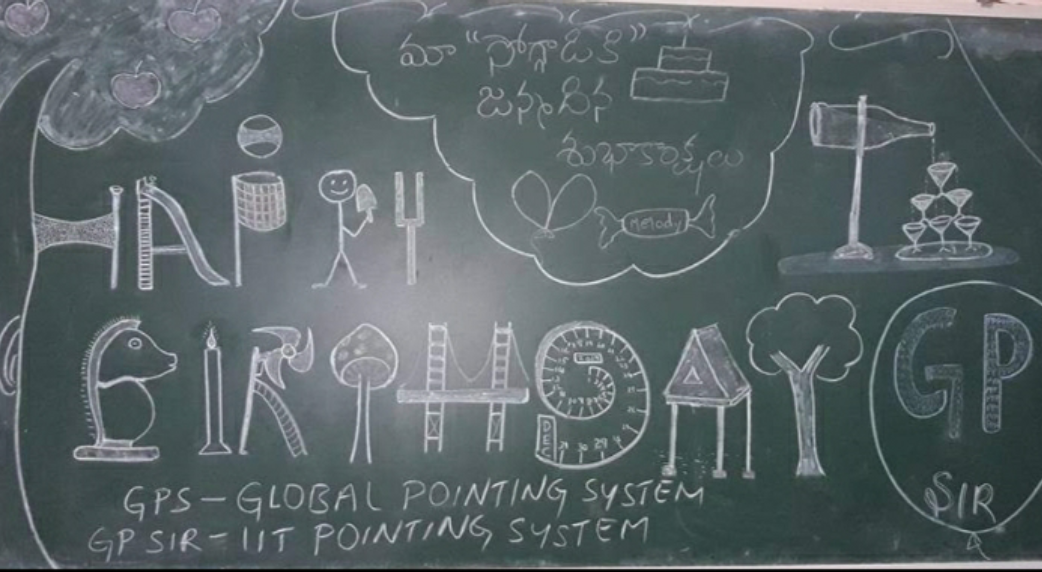 మా "సోగ్గాడికి"
జన్మదిన
శుభాకాంక్షలు
Melody
HAPPY
BIRTHDAY
GP
SIR
DEC
GPS-GLOBAL POINTING SYSTEM
GP SIR-IIT POINTING SYSTEM